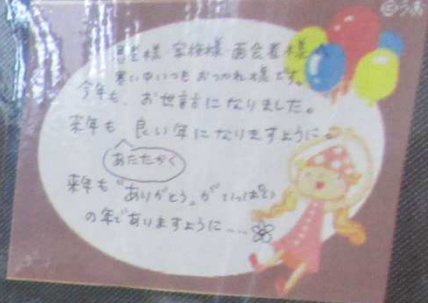 ©うみ
患者様・家族様・面会者様へ
寒い中いつもおつかれ様です。
今年も、お世話になりました。
来年も、良い年になりますように。
あたたかく
来年も“ありがとう”がいっぱい
の年でありますように…